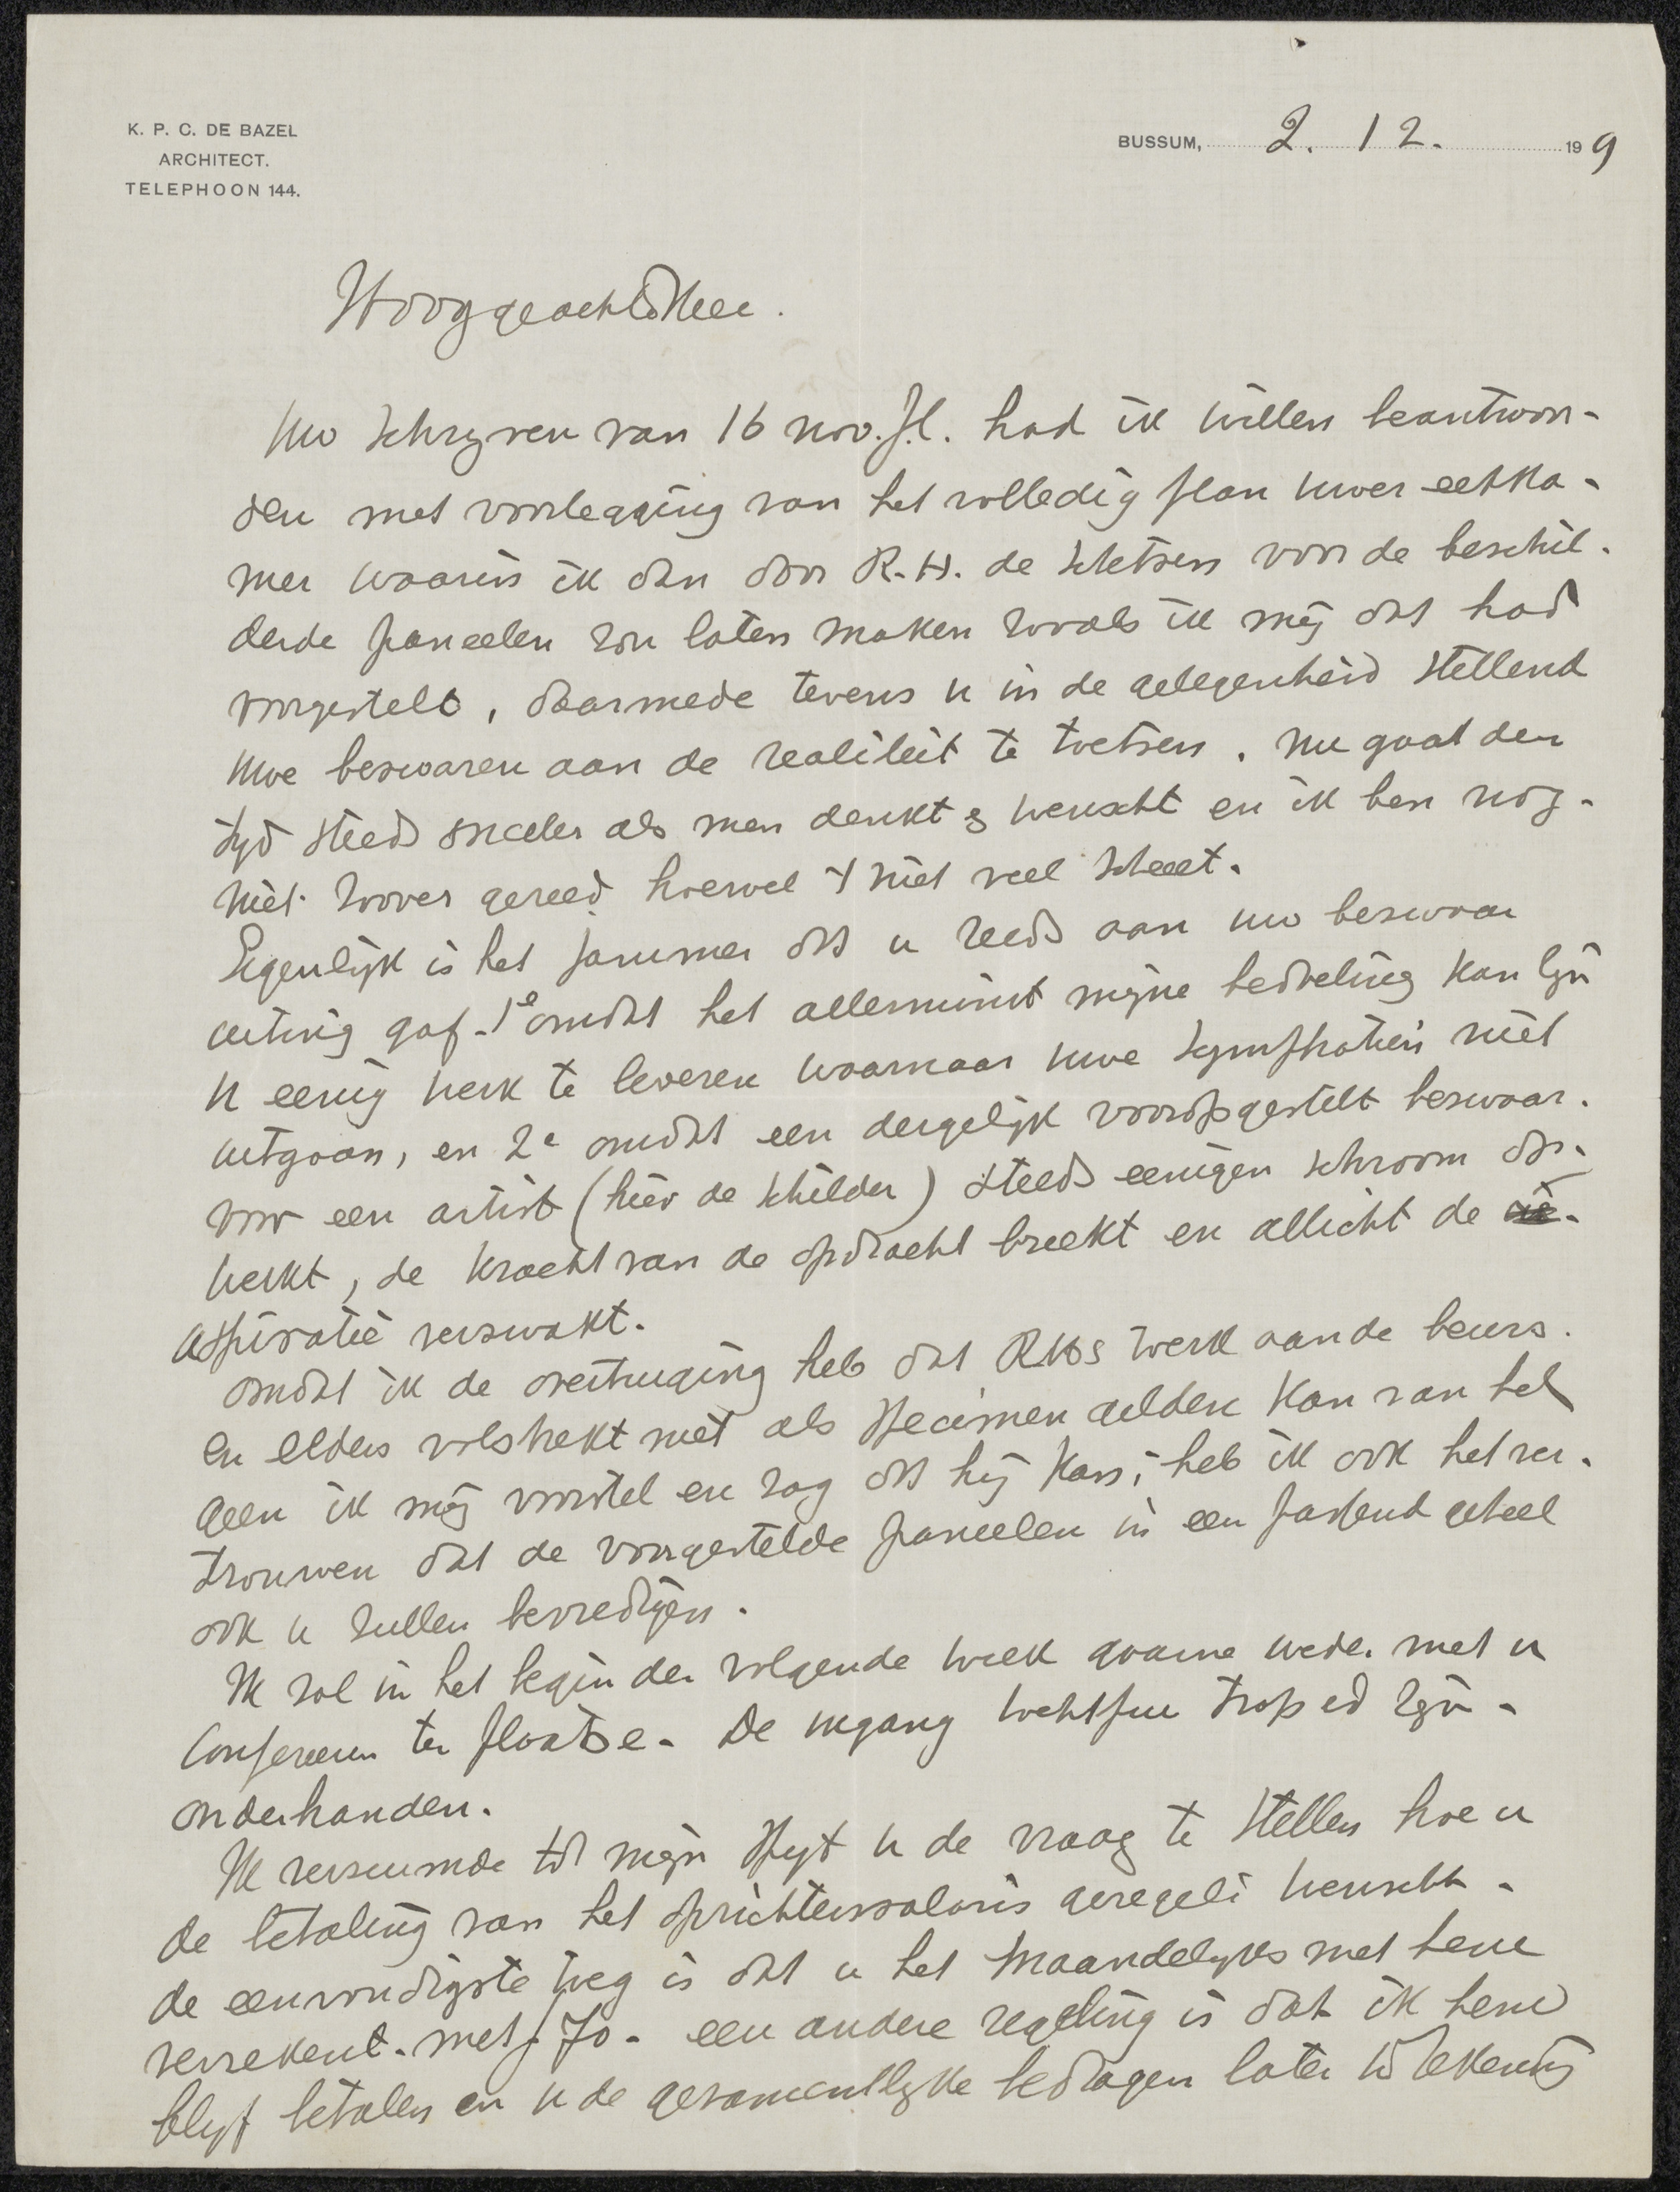 K. P. C. DE BAZEL
ARCHITECT.
TELEPHOON 144.
BUSSUM, 2. 12. 199
Hooggeachte Heer.
Uw schryven van 16 nov. j.l. had ik willen beantwoor-
den met voorlegging van het volledig plan uwer eetka-
mer waarin ik dan door R.H. de schetsen voor de beschil-
derde paneelen zou laten maken zooals ik mij dat had
voorgesteld, daarmede tevens u in de gelegenheid stellend
uwe beswaren aan de realiteit te toetsen. nu gaat den
tyd steeds sneller als men denkt & wenscht en ik ben nog-
niet zoover gereed hoewel 't niet veel scheelt.
Eigenlijk is het jammer dat u reeds aan uw beswaar
uiting gaf - 1e omdat het allerminst mijne bedoeling kan zijn
u eenig werk te leveren waarnaar uwe sympathiën niet
uitgaan, en 2e omdat een dergelijk vooropgesteld beswaar.
voor een artist (hier de schilder) steeds eenigen schroom op-
werkt, de kracht van de opdracht breekt en allicht de
aspiratie verswakt.
omdat ik de overtuiging heb dat RHs werk aan de beurs.
en elders volstrekt niet als specimen gelden kan van het
geen ik mij voorstel en zag dat hij kan, heb ik ook het ver-
trouwen dat de voorgestelde paneelen in een passend geheel
ook u zullen bevredigen.
Ik zal in het begin der volgende week gaarne weder met u
confereeren ter plaatse. De ingang trap ed zijn -
onderhanden.
Ik versuimde tot mijn spyt u de vraag te stellen hoe u
de betaling van het opzichterssalaris geregeld wenscht -
de eenvoudigste weg is dat u het maandelyks met hem
verrekent. met f 70 - een andere regeling is dat ik hem
blyf betalen en u de gesamentlyke bedragen later in rekening